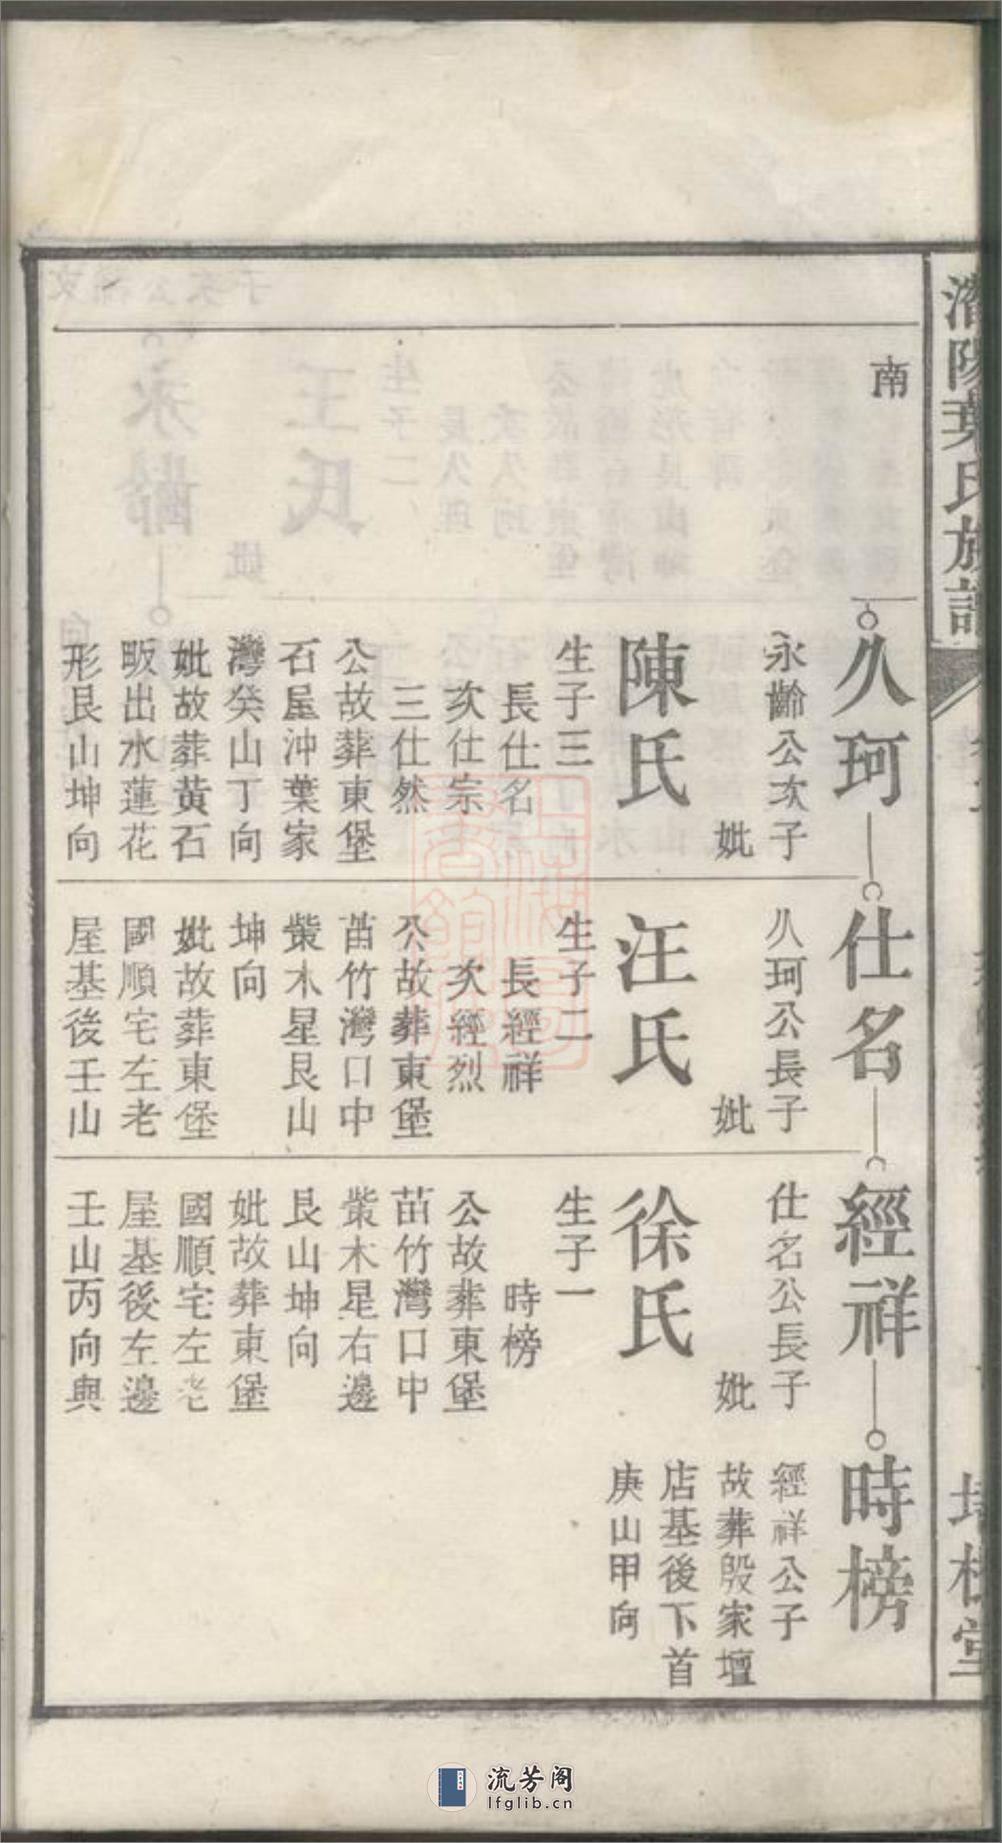 南
久珂
永齡公次子
妣
陳氏
生子三
長仕名
次仕宗
三仕然
公故葬東堡
石屋沖葉家
灣癸山丁向
妣故葬黃石
畈出水蓮花
形艮山坤向
仕名
久珂公長子
妣
汪氏
生子二
長經祥
次經烈
公故葬東堡
苗竹灣口中
紫木星艮山
坤向
妣故葬東堡
國順宅左老
屋基後壬山
經祥
仕名公長子
妣
徐氏
生子一
時榜
公故葬東堡
苗竹灣口中
紫木星右邊
艮山坤向
妣故葬東堡
國順宅左老
屋基後左邊
壬山丙向與
時榜
經祥公子
故葬殷家壇
店基後下首
庚山甲向
流芳阁
lfglib.cn